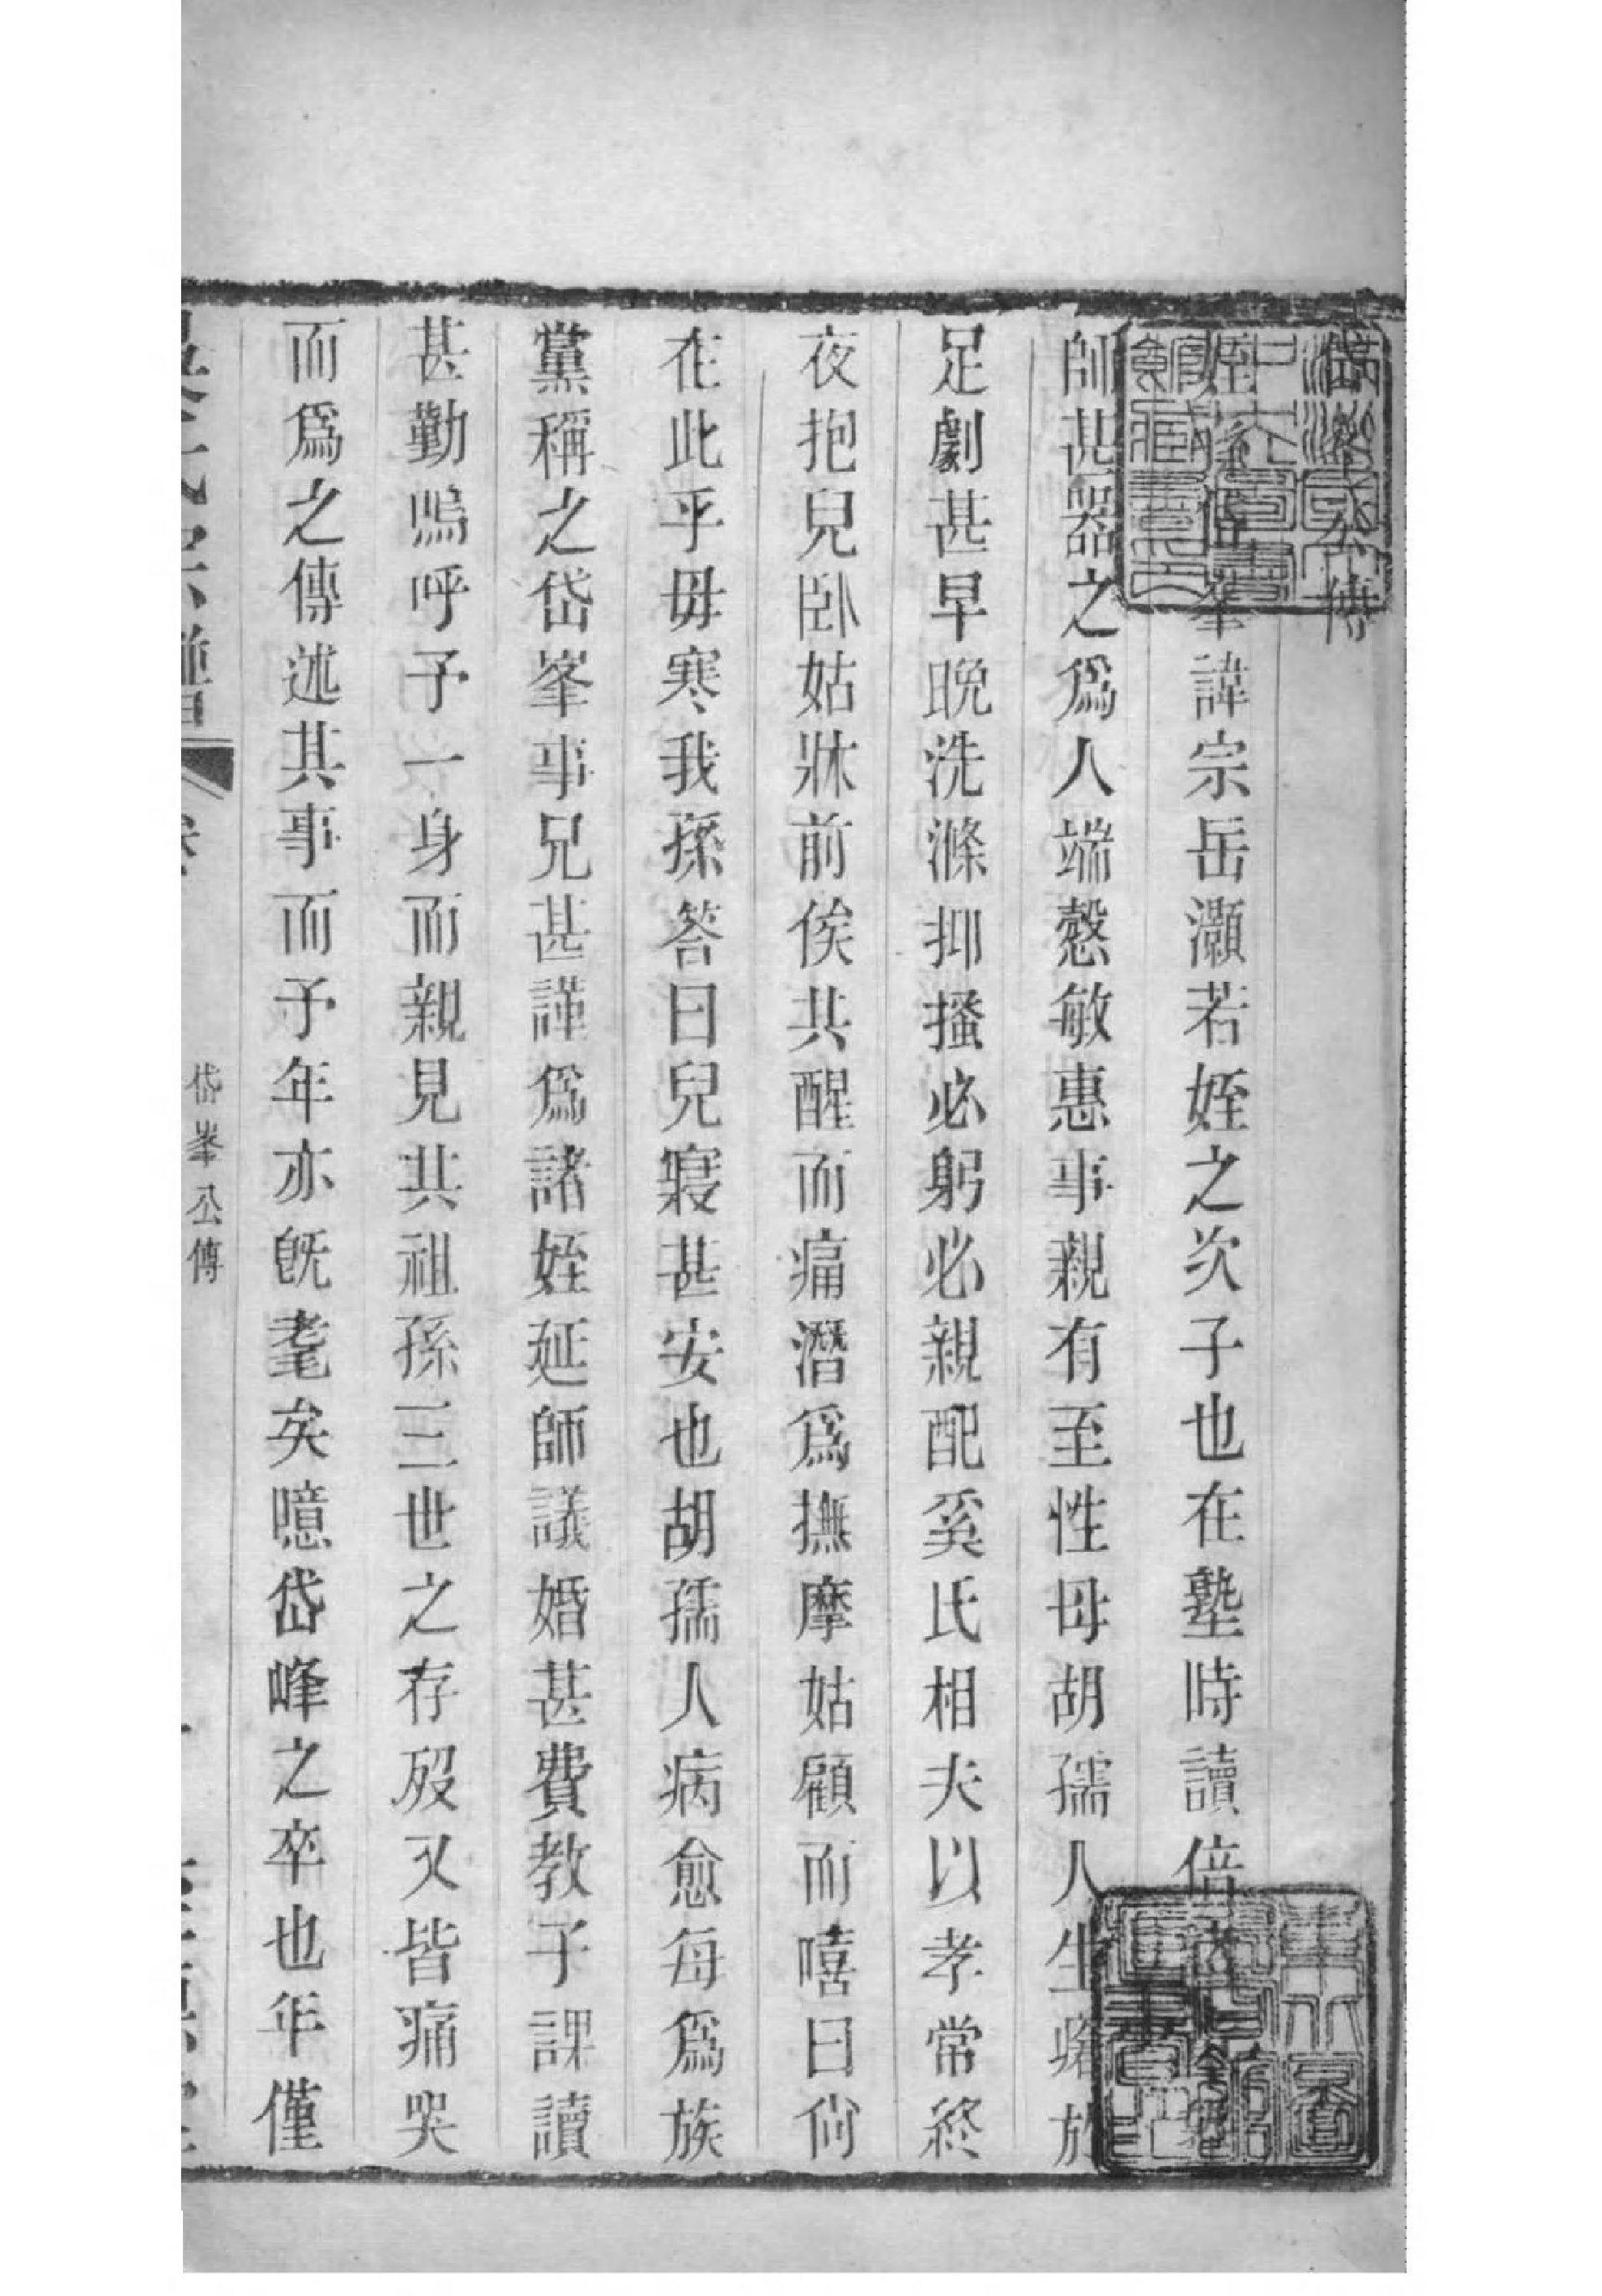 岱峯公傳
姪孫岱峯諱宗岳灝若姪之次子也在塾時讀倍
師甚器之爲人端慤敏惠事親有至性母胡孺人生瘏於
足劇甚早晩洗滌抑搔必躬必親配奚氏相夫以孝常終
夜抱兒臥姑牀前俟共醒而痛潛爲撫摩姑顧而嘻曰尙
在此乎毋寒我孫答曰兒寢甚安也胡孺人病愈每爲族
黨稱之岱峯事兄甚謹爲諸姪延師議婚甚費教子課讀
甚勤嗚呼予一身而親見共祖孫三世之存歿又皆痛哭
而爲之傳述其事而予年亦旣耄矣噫岱峰之卒也年僅
岱峯公傳